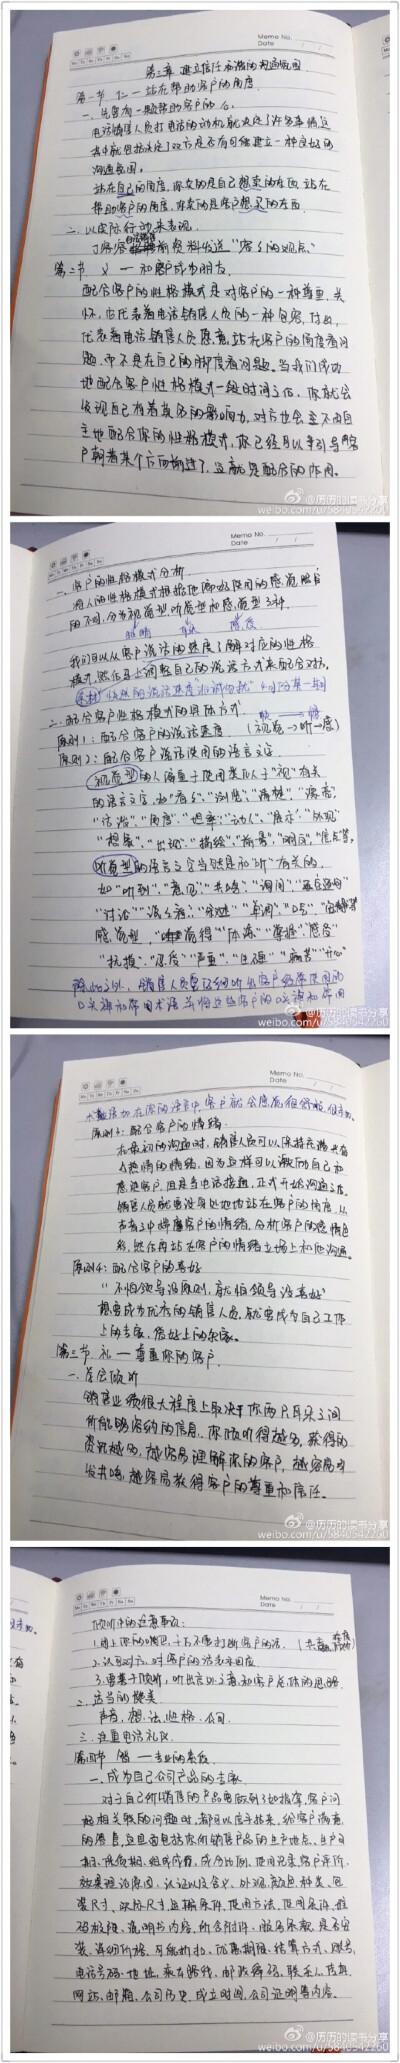 Memo No.
Date / /
第三章 建立信任和谐的沟通氛围
第一节 仁——站在帮助客户的角度
一、先要有一颗帮助客户的心。
电话销售人员打电话的动机就决定了许多事情,这
其中就包括决定了双方是否有可能建立一种良好的
沟通氛围。
站在自己的角度,你卖的是自己想卖的东西,站在
帮助客户的角度,你卖的是客户想买的东西
二、以实际行动来表现
资料发送“客户的观点”
第二节 义——和客户成为朋友
配合客户的性格模式是对客户的一种尊重、关
怀,也代表着电话销售人员的一种包容、付出,
代表着电话销售人员愿意站在客户的角度看问
题,而不是在自己的角度看问题。当我们成功
地配合客户性格模式一段时间之后,你就会
发现自己有着莫名的影响力,对方也会不由自
主地配合你的性格模式,你已经可以牵引导客
户朝着某个方向前进了,这就是配合的作用。
@历历的读书分享
weibo.com/u/5840542260
Memo No.
Date / /
一、客户的性格模式分析
将人的性格模式根据他们偏好使用的感觉器官
的不同,分为视觉型、听觉型和感觉型3种。
眼睛 耳朵 感受
我们可以从客户说话的速度了解对应的性格
模式,然后马上调整自己的说话方式来配合对方。
二、配合客户性格模式的具体方式
快 → 慢
原则1:配合客户的说话速度 (视觉→听→感)
原则2:配合客户说话使用的语言文字
视觉型的人偏重于使用类似于“视”有关
的语言文字,如“看”、“浏览”、“清楚”、“漂亮”
“角度”、“坦率”、“动人”、“展示”、“外观”
“想象”、“出现”、“描绘”、“前景”、“明确”、“焦点”等。
听觉型的语言文字当然是和“听”有关的,
如“听到”、“意见”、“共鸣”、“询问”
“讨论”、“单调”、“口号”
感觉型,“觉得”“体验”“掌握”“感受”
“抗拒”、“承受”“严重”、“坚强”“痛苦”“开心”
除此之外,销售人员要仔细听出客户经常使用的
口头禅和常用术语,并将这些客户的口头禅和常用
@历历的读书分享
weibo.com/u/5840542260
Memo No.
Date / /
术语加在你的语言中,客户就会感觉很舒服、很亲切。
原则3:配合客户的情绪
在最初的沟通时,销售人员可以保持充满兴奋
与热情的情绪,因为这样可以激励自己和
感染客户,但是当电话接通,正式开始沟通之后,
销售人员就要设身处地地站在客户的角度,从
声音之中揣摩客户的情绪,分析客户的感情色
彩,然后再站在客户的情绪立场上和他沟通。
原则4:配合客户的喜好
“不怕领导没原则,就怕领导没喜好”
想要成为优秀的销售人员,就要成为自己工作
上的专家,喜好上的杂家。
第三节 礼——尊重你的客户
一、学会倾听
销售业绩很大程度上取决于你两片耳朵之间
所能够容纳的信息,你倾听得越多,获得的
资讯越多,越容易理解你的客户,越容易引
发共鸣,越容易获得客户的尊重和信任。
@历历的读书分享
weibo.com/u/5840542260
Memo No.
Date / /
倾听中的注意事项:
1.闭上你的嘴巴,千万不要打断客户的话。
2.认可对方,对客户的话表示回应
3.要善于倾听,听出言外之音,和客户总体的思路
二、适当的赞美
声音、想法、性格、公司
三、注重电话礼仪
第四节 智——专业的表现
一、成为自己公司产品的专家
对于自己所销售的产品要做到了如指掌,客户问
起相关联的问题时,都可以应手拈来,给客户满意
的答复,这里面包括你所销售产品的生产地点、生产日
期、保质期、组成成分、成分比例、使用记录、客户评价、
效果理论原因、认证以及含义、外观、颜色种类、包
装尺寸、实际尺寸、运输条件、使用方法、使用条件、维
码校验、说明书内容、所含附件、服务条款、是否安
装、详细价格、可能折扣、优惠期限、结算方式、账号、
电话号码、地址、乘车路线、邮政编码、联系人、传真、
网站、邮箱、公司历史、成立时间、公司证明等内容。
@历历的读书分享
weibo.com/u/5840542260